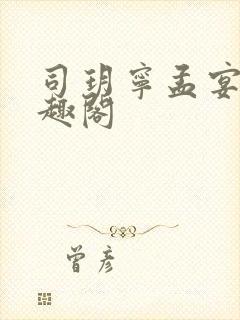 司玥宁孟宴
趣阁
曾彦